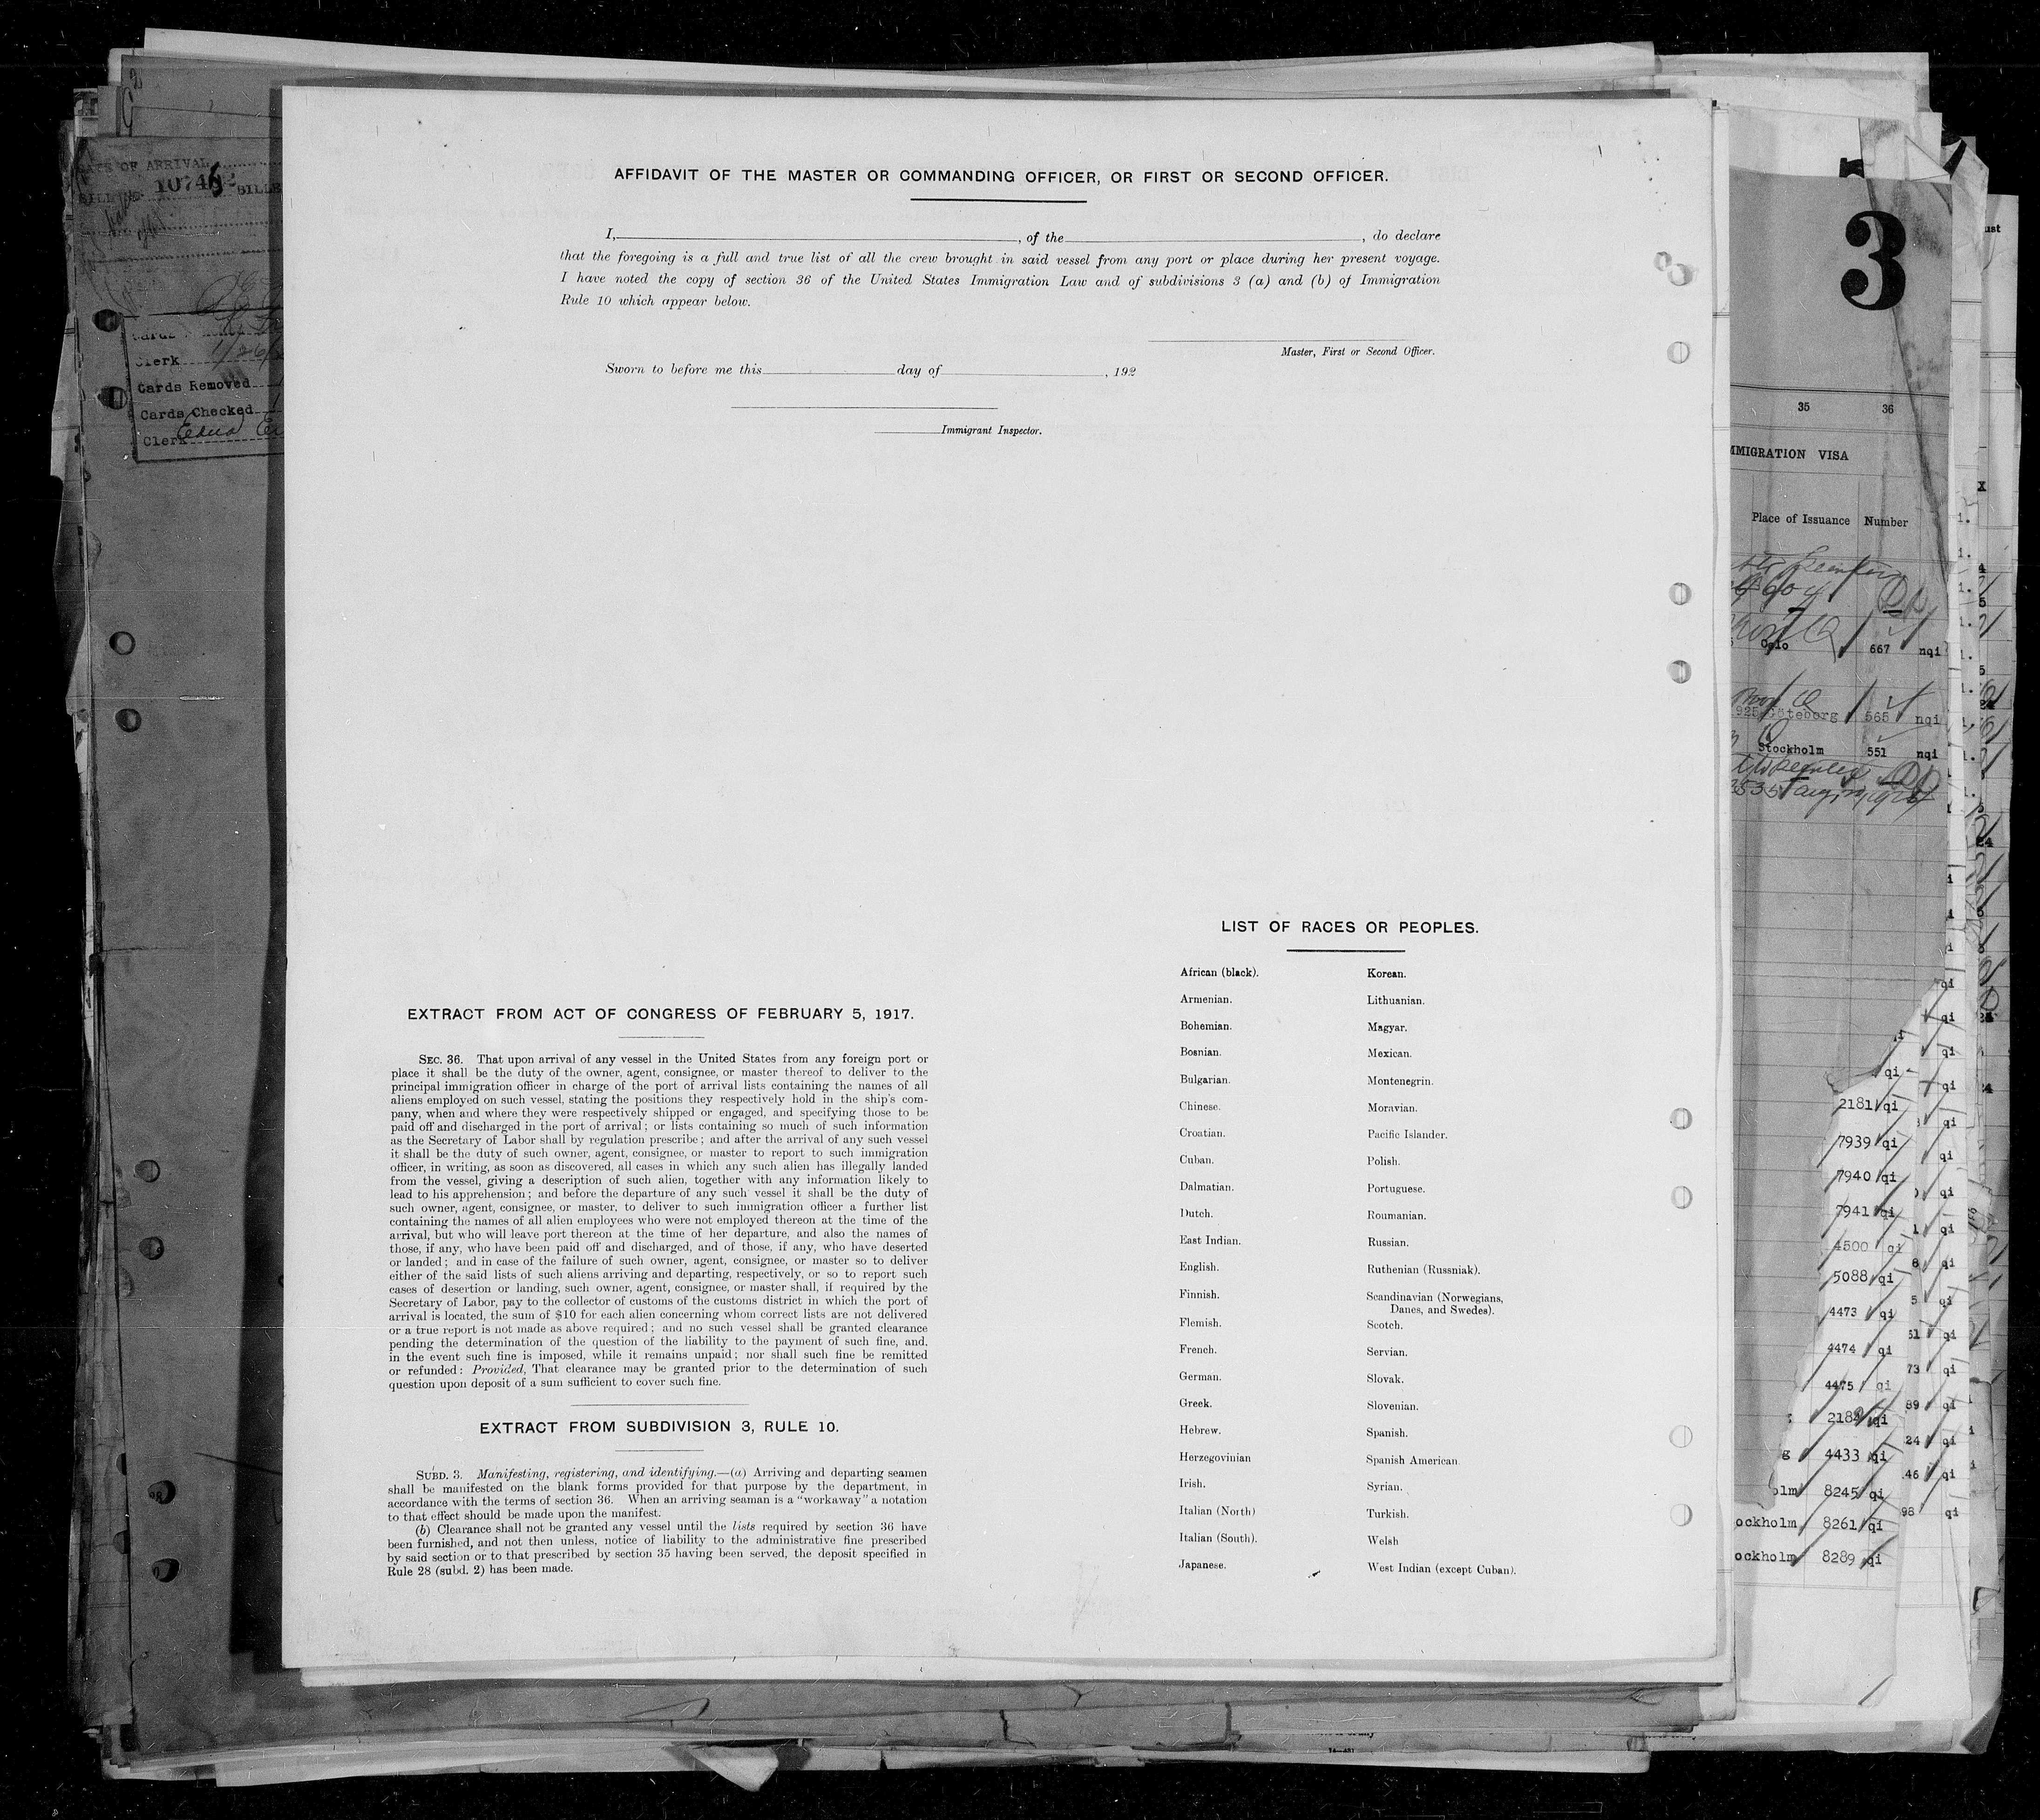 AFFIDAVIT OF THE MASTER OR COMMANDING OFFICER, OR FIRST OR SECOND OFFICER.
I, , of the , do declare
that the foregoing is a full and true list of all the crew brought in said vessel from any port or place during her present voyage.
I have noted the copy of section 36 of the United States Immigration Law and of subdivisions 3 (a) and (b) of Immigration
Rule 10 which appear below.
Master, First or Second Officer.
Sworn to before me this day of , 192
Immigrant Inspector.
EXTRACT FROM ACT OF CONGRESS OF FEBRUARY 5, 1917.
SEC. 36. That upon arrival of any vessel in the United States from any foreign port or
place it shall be the duty of the owner, agent, consignee, or master thereof to deliver to the
principal immigration officer in charge of the port of arrival lists containing the names of all
aliens employed on such vessel, stating the positions they respectively hold in the ship's com-
pany, when and where they were respectively shipped or engaged, and specifying those to be
paid off and discharged in the port of arrival; or lists containing so much of such information
as the Secretary of Labor shall by regulation prescribe; and after the arrival of any such vessel
it shall be the duty of such owner, agent, consignee, or master to report to such immigration
officer, in writing, as soon as discovered, all cases in which any such alien has illegally landed
from the vessel, giving a description of such alien, together with any information likely to
lead to his apprehension; and before the departure of any such vessel it shall be the duty of
such owner, agent, consignee, or master, to deliver to such immigration officer a further list
containing the names of all alien employees who were not employed thereon at the time of the
arrival, but who will leave port thereon at the time of her departure, and also the names of
those, if any, who have been paid off and discharged, and of those, if any, who have deserted
or landed; and in case of the failure of such owner, agent, consignee, or master so to deliver
either of the said lists of such aliens arriving and departing, respectively, or so to report such
cases of desertion or landing, such owner, agent, consignee, or master shall, if required by the
Secretary of Labor, pay to the collector of customs of the customs district in which the port of
arrival is located, the sum of $10 for each alien concerning whom correct lists are not delivered
or a true report is not made as above required; and no such vessel shall be granted clearance
pending the determination of the question of the liability to the payment of such fine, and,
in the event such fine is imposed, while it remains unpaid; nor shall such fine be remitted
or refunded: Provided, That clearance may be granted prior to the determination of such
question upon deposit of a sum sufficient to cover such fine.
EXTRACT FROM SUBDIVISION 3, RULE 10.
SUBD. 3. Manifesting, registering, and identifying.—(a) Arriving and departing seamen
shall be manifested on the blank forms provided for that purpose by the department, in
accordance with the terms of section 36. When an arriving seaman is a "workaway" a notation
to that effect should be made upon the manifest.
(b) Clearance shall not be granted any vessel until the lists required by section 36 have
been furnished, and not then unless, notice of liability to the administrative fine prescribed
by said section or to that prescribed by section 35 having been served, the deposit specified in
Rule 28 (subd. 2) has been made.
LIST OF RACES OR PEOPLES.
African (black).
Armenian.
Bohemian.
Bosnian.
Bulgarian.
Chinese.
Croatian.
Cuban.
Dalmatian.
Dutch.
East Indian.
English.
Finnish.
Flemish.
French.
German.
Greek.
Hebrew.
Herzegovinian
Irish.
Italian (North)
Italian (South).
Japanese.
Korean.
Lithuanian.
Magyar.
Mexican.
Montenegrin.
Moravian.
Pacific Islander.
Polish.
Portuguese.
Roumanian.
Russian.
Ruthenian (Russniak).
Scandinavian (Norwegians,
Danes, and Swedes).
Scotch.
Servian.
Slovak.
Slovenian.
Spanish.
Spanish American
Syrian.
Turkish.
Welsh
West Indian (except Cuban).
OF ARRIVAL
Clerk
Cards Removed
Cards Checked
Clerk Edna
3
35 36
IMMIGRATION VISA
Place of Issuance Number
Oslo 667 nqi
Göteborg 565 nqi
Stockholm 551 nqi
2181 qi
7939 qi
7940 qi
7941 qi
4500 qi
5088 qi
4473 qi
4474 qi
4475 qi
4433 qi
8245 qi
8261 qi
8289 qi